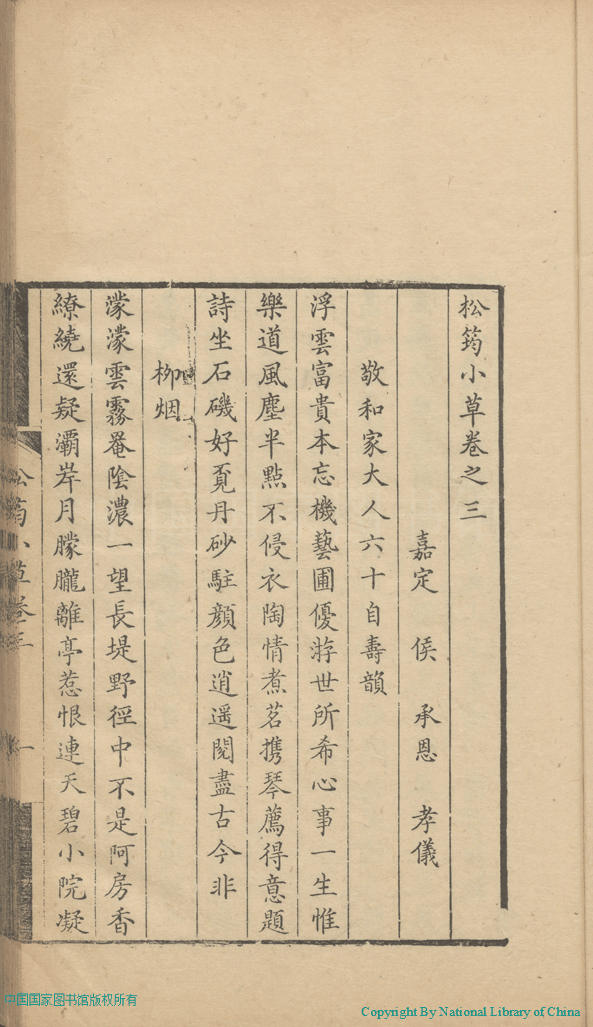 松筠小草卷之三
嘉定 侯 承恩 孝儀
敬和家大人六十自壽韻
浮雲富貴本忘機藝圃優游世所希心事一生惟
樂道風塵半點不侵衣陶情煮茗携琴薦得意題
詩坐石磯好覔丹砂駐顔色逍遥閱盡古今非
柳烟
濛濛雲霧罨隂濃一望長堤野徑中不是阿房香
繚繞還疑灞岸月朦朧離亭惹恨連天碧小院凝
松筠小草卷三
一
中国国家图书馆版权所有
Copyright By National Library of China